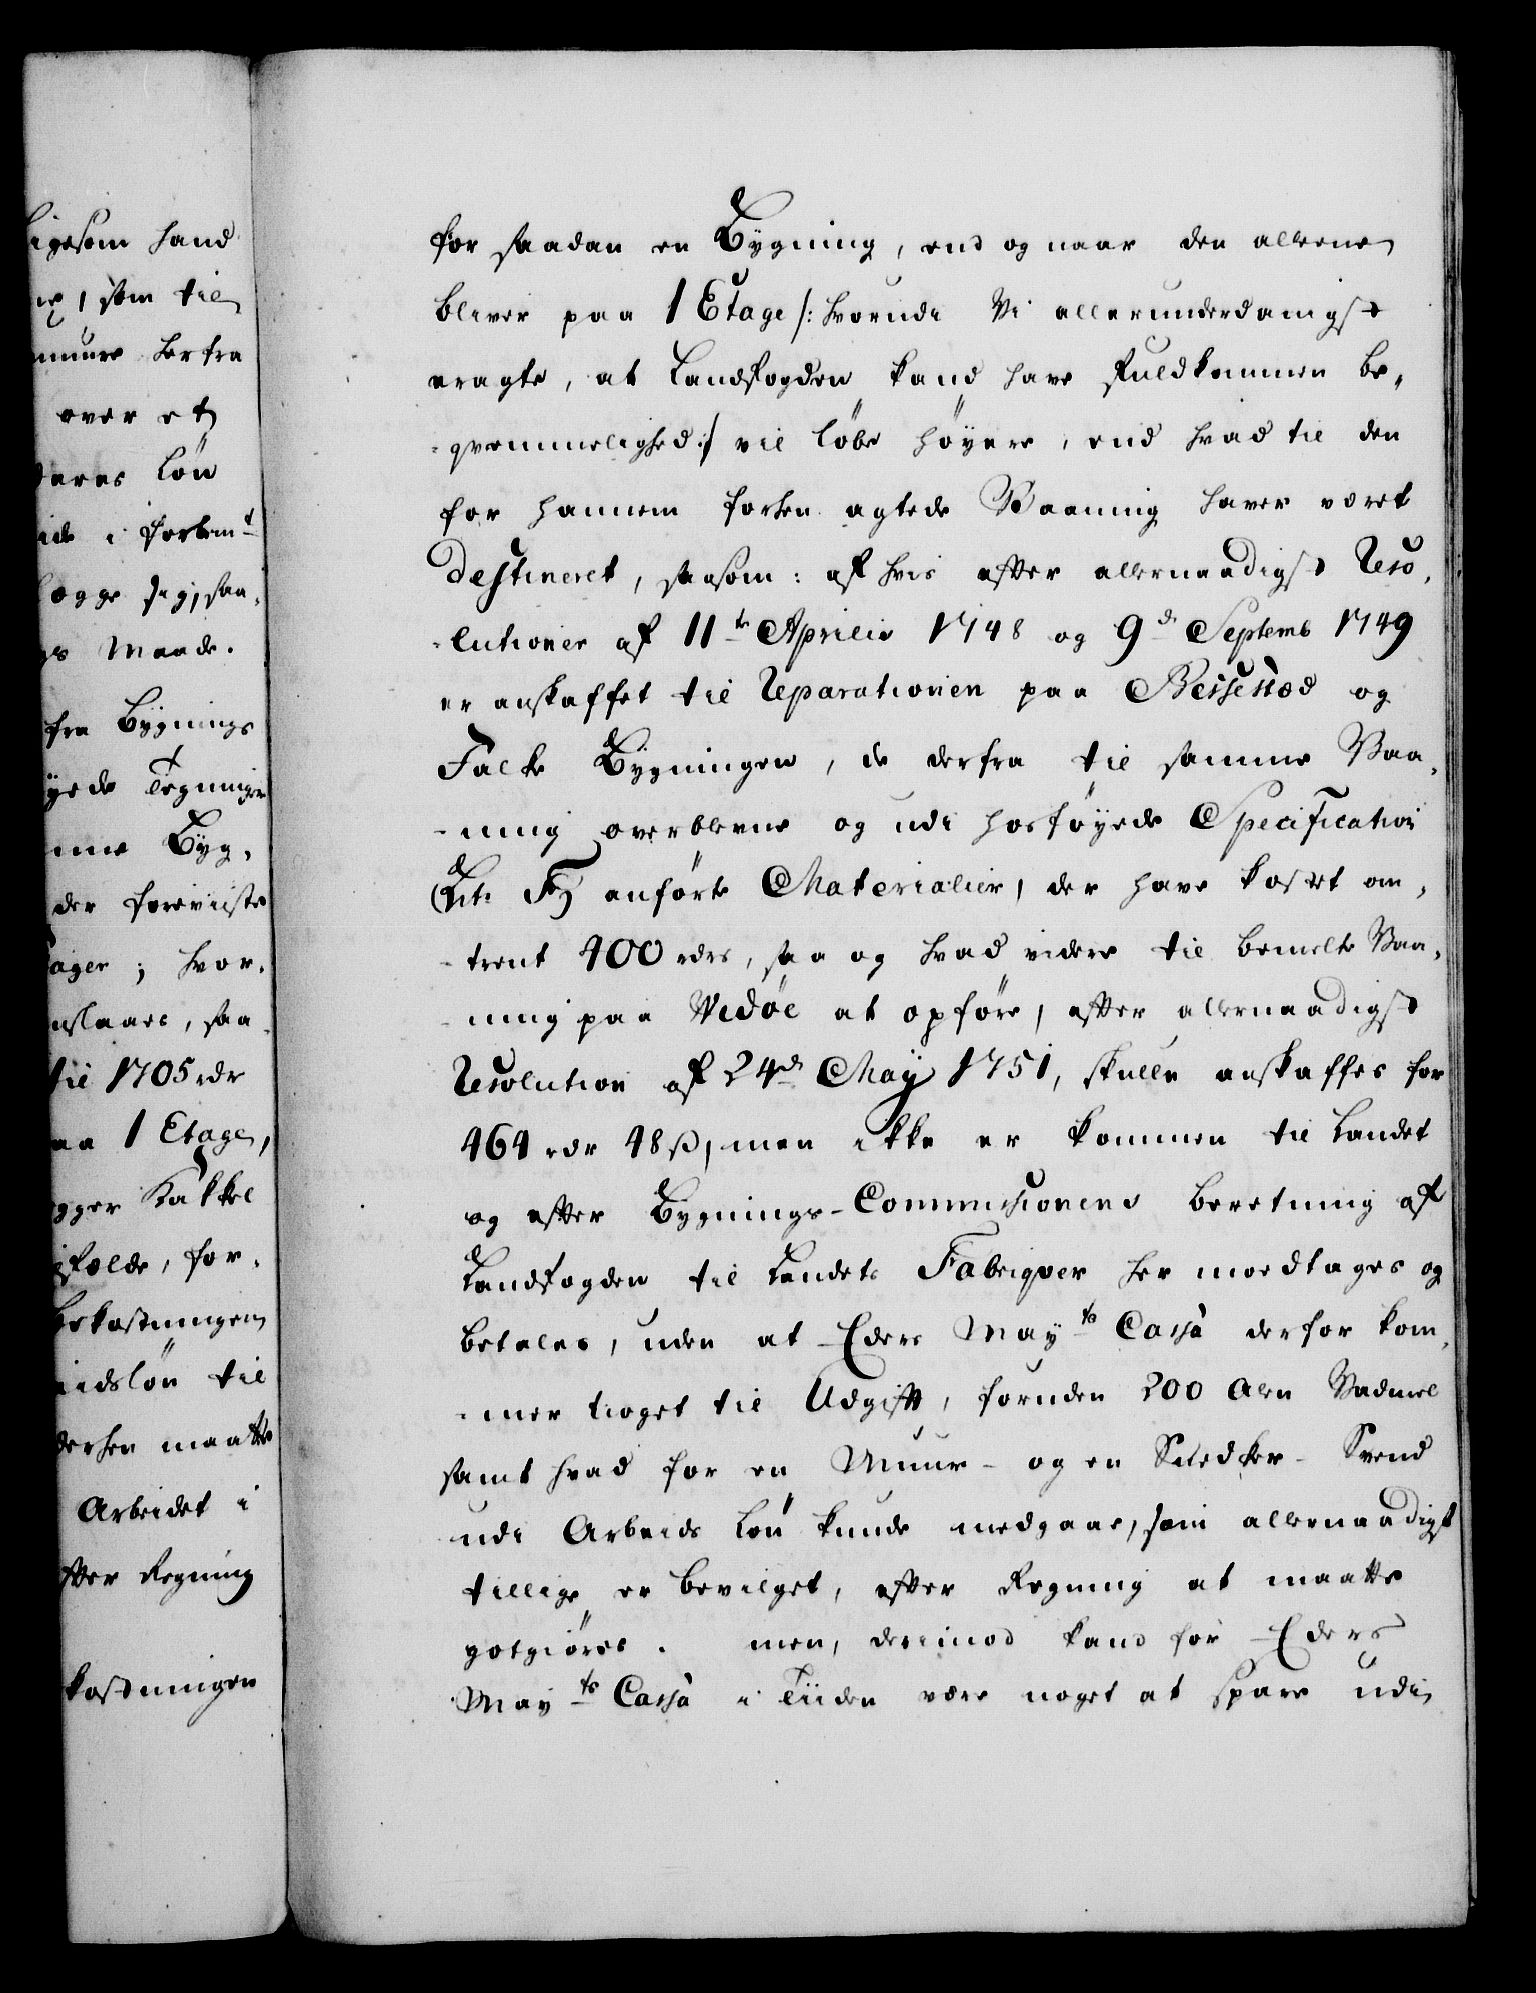 igesom hand
som til
muure herfra
over et
deres Løn
i forbemt
lægge sig, saa-
Maade.
fra Bygnings
Tegninger
Byg-
der foreviiste
hvor-
saa
til 1705 rdr
1 Etage,
Kakkel
for-
bekostningen
til
maatte
Arbeidet i
efter Regning
kostningen
for saadan en Bygning, end og naar den alleene
bliver paa 1 Etage /: hvorudi Vi allerunderdanigst
eragte, at Landfogden kand have fuldkommen be-
-qvemmelighed :/ vil løbe høyere, end hvad til den
for hannem forhen agtede Vaaning haver været
destineret, saasom: af hvis efter allernaadigst Reso-
-lutioner af 11te Aprilis 1748 og 9de Septemb 1749
er anskaffet til Reparationen paa Bessested og
Falke Bygningen, de derfra til samme Vaa-
-ning overblevne og udi hosføyede Specification
(Lit: F) anførte Materialier, der have kostet om-
-trent 400 rdrs, saa og hvad videre til bemelte Vaa-
-ning paa Vidøe at opføre, efter allernaadigst
Resolution af 24de May 1751, skulle anskaffes for
464 rdr 48 ß, men ikke er kommen til Landet
og efter Bygnings-Commissionens beretning af
Landfogden til Landets Fabriqver her modtages og
betales, uden at Eders Mayts Cassa derfor kom-
-mer noget til Udgift, foruden 200 Alen Vadmel
samt hvad for en Muur- og en Snedker-Svend
udi Arbeids Løn kunde medgaae, som allernaadigst
tillige er bevilget, efter Regning at maatte
gotgiøres. men, derimod kand for Eders
Mayts Cassa i Tiiden være noget at spare udi